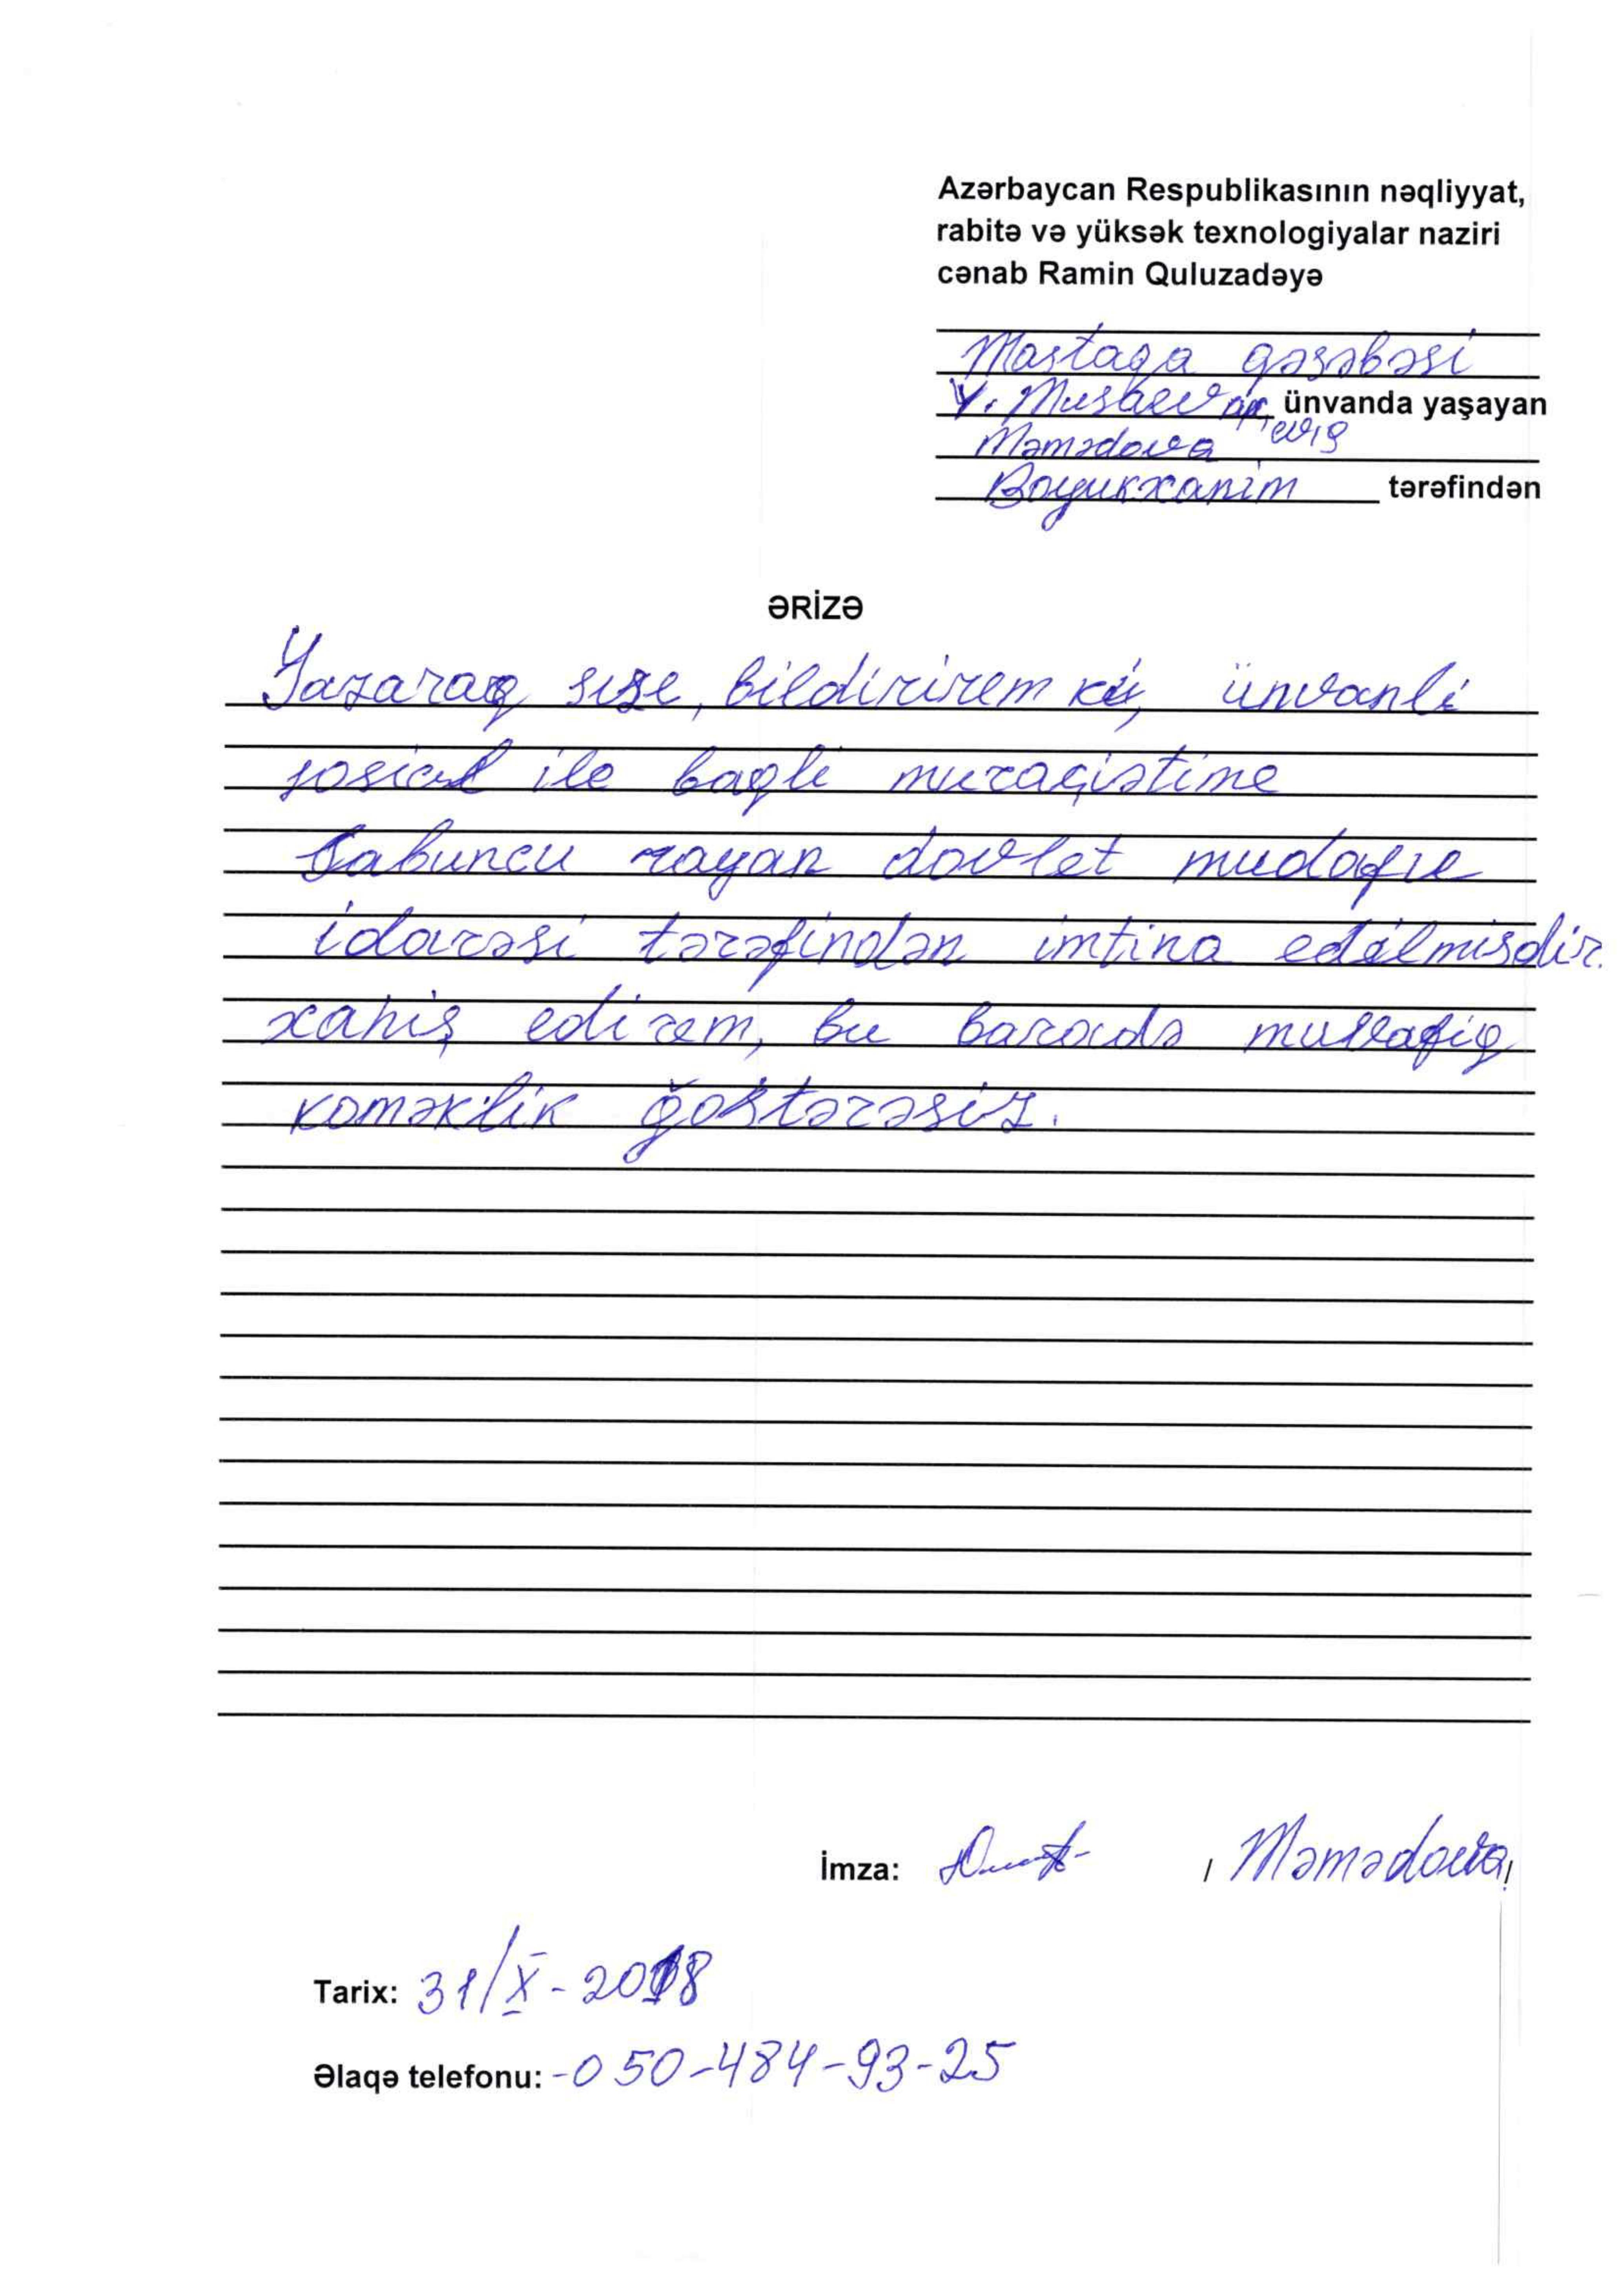 Azərbaycan Respublikasının nəqliyyat,
rabitə və yüksək texnologiyalar naziri
cənab Ramin Quluzadəyə
Mastaga qəsəbəsi
ünvanda yaşayan
Məmədova
Boyukxanim tərəfindən
ƏRİZƏ
Yazaraq sıze, bildirirem ki, ünvanli
sosial ile bagli muraçiətime
Sabuncu rayan dovlet mudafıe
idarəsi tərəfindən imtina edilmisdir.
xahiş edirem, bu barədə muvafig
koməklik ğostərəsiz.
İmza: / Məmədova /
Tarix: 31/X-2018
Əlaqə telefonu: -050-484-93-25